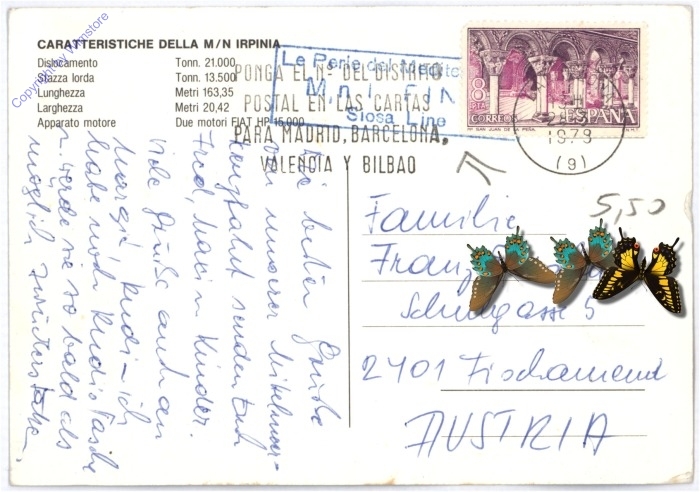 Copyright by Wiinstore
CARATTERISTICHE DELLA M/N IRPINIA
Dislocamento Tonn. 21.000
Stazza lorda Tonn. 13.500
Lunghezza Metri 163,35
Larghezza Metri 20,42
Apparato motore Due motori FIAT HP 15.000
Le Perle del Medite
M/n IRPINIA
Siosa Line
PONGA EL Nº DEL DISTRITO
POSTAL EN LAS CARTAS
PARA MADRID, BARCELONA,
VALENCIA Y BILBAO
8
PTA
CORREOS
ESPAÑA
SAN JUAN DE LA PEÑA
1979
(9)
5,50
Die besten Grüße
von unserer Mittelmeer-
kreuzfahrt senden Euch
Fred, Maria Kinder.
Viele Grüße auch an
Margit, Rudi - ich
habe noch Rudis Tasche
u. werde sie so bald als
möglich
Familie
Franz
5
2401 Fischamend
AUSTRIA